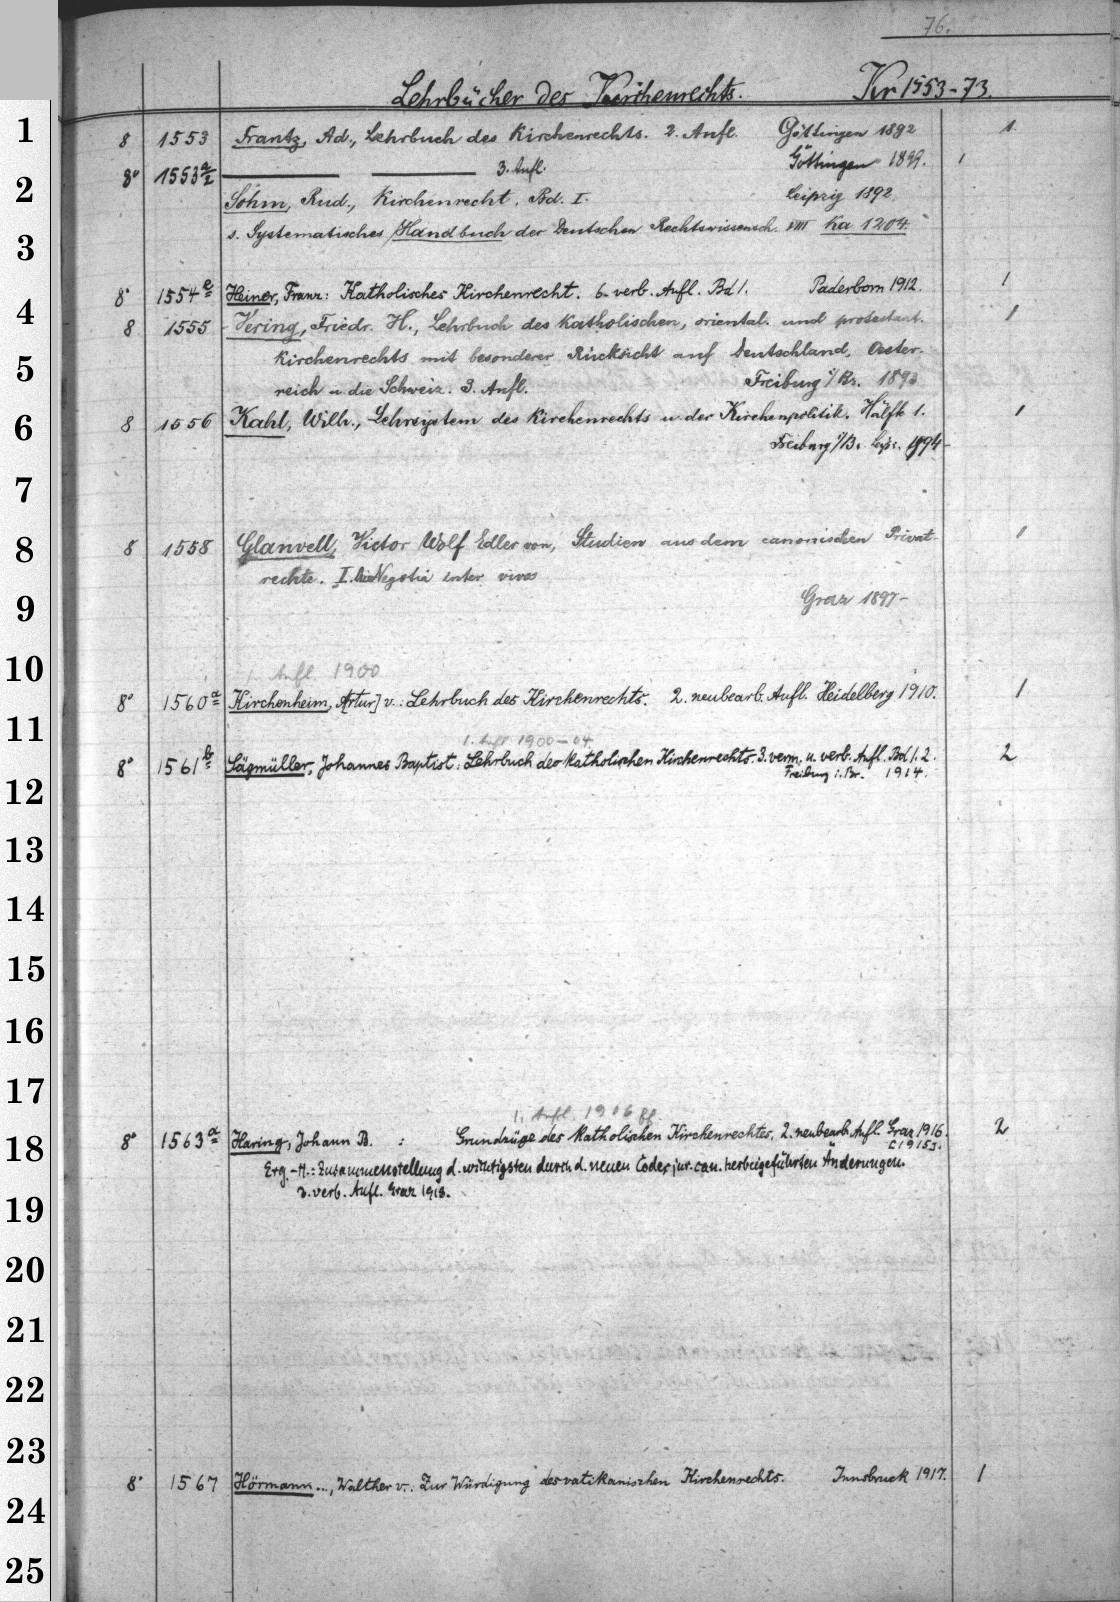 76.
Lehrbücher des Kirchenrechts. Kr 1553-73.
1
8 1553 Frantz, Ad., Lehrbuch des Kirchenrechts. 2. Aufl. Göttingen 1892 1
8° 1553 a/I 3. Aufl. Göttingen 1899. 1
2
Sohm, Rud., Kirchenrecht. Bd. I. Leipzig 1892
s. Systematisches Handbuch der Deutschen Rechtswissensch. VIII Ka 1204.
3
8° 1554 e Heiner, Franz: Katholisches Kirchenrecht. 6. verb. Aufl. Bd 1. Paderborn 1912. 1
4
8 1555 Vering, Friedr. H., Lehrbuch des katholischen, oriental. und protestant. 1
Kirchenrechts mit besonderer Rücksicht auf Deutschland, Oester-
5
reich u. die Schweiz. 3. Aufl. Freiburg i/Br. 1893
6
8 1556 Kahl, Wilh., Lehrsystem des Kirchenrechts u. der Kirchenpolitik. Hälfte 1. 1
Freiburg i/B. Leipz. 1894-
7
8
8 1558 Glanvell, Victor Wolf Edler von, Studien aus dem canonischen Privat- 1
rechte. I. Die Negotia inter vivos
9
Graz 1897-
10
1. Aufl. 1900
8° 1560 a Kirchenheim, A[rtur] v.: Lehrbuch des Kirchenrechts. 2. neubearb. Aufl. Heidelberg 1910. 1
11
1. Aufl. 1900-04
8° 1561 b Sägmüller, Johannes Baptist: Lehrbuch des katholischen Kirchenrechts. 3. verm. u. verb. Aufl. Bd 1. 2. 2
Freiburg i. Br. 1914.
12
13
14
15
16
17
1. Aufl. 1916 ff.
18
8° 1563 a Haring, Johann B. : Grundzüge des katholischen Kirchenrechtes. 2. neubearb. Aufl. Graz 1916. 2
[1915].
Erg.-H.: Zusammenstellung d. wichtigsten durch d. neuen Codex jur. can. herbeigeführten Änderungen.
3. verb. Aufl. Graz 1918.
19
20
21
22
23
8° 1567 Hörmann ..., Walther v.: Zur Würdigung des vatikanischen Kirchenrechts. Innsbruck 1917. 1
24
25